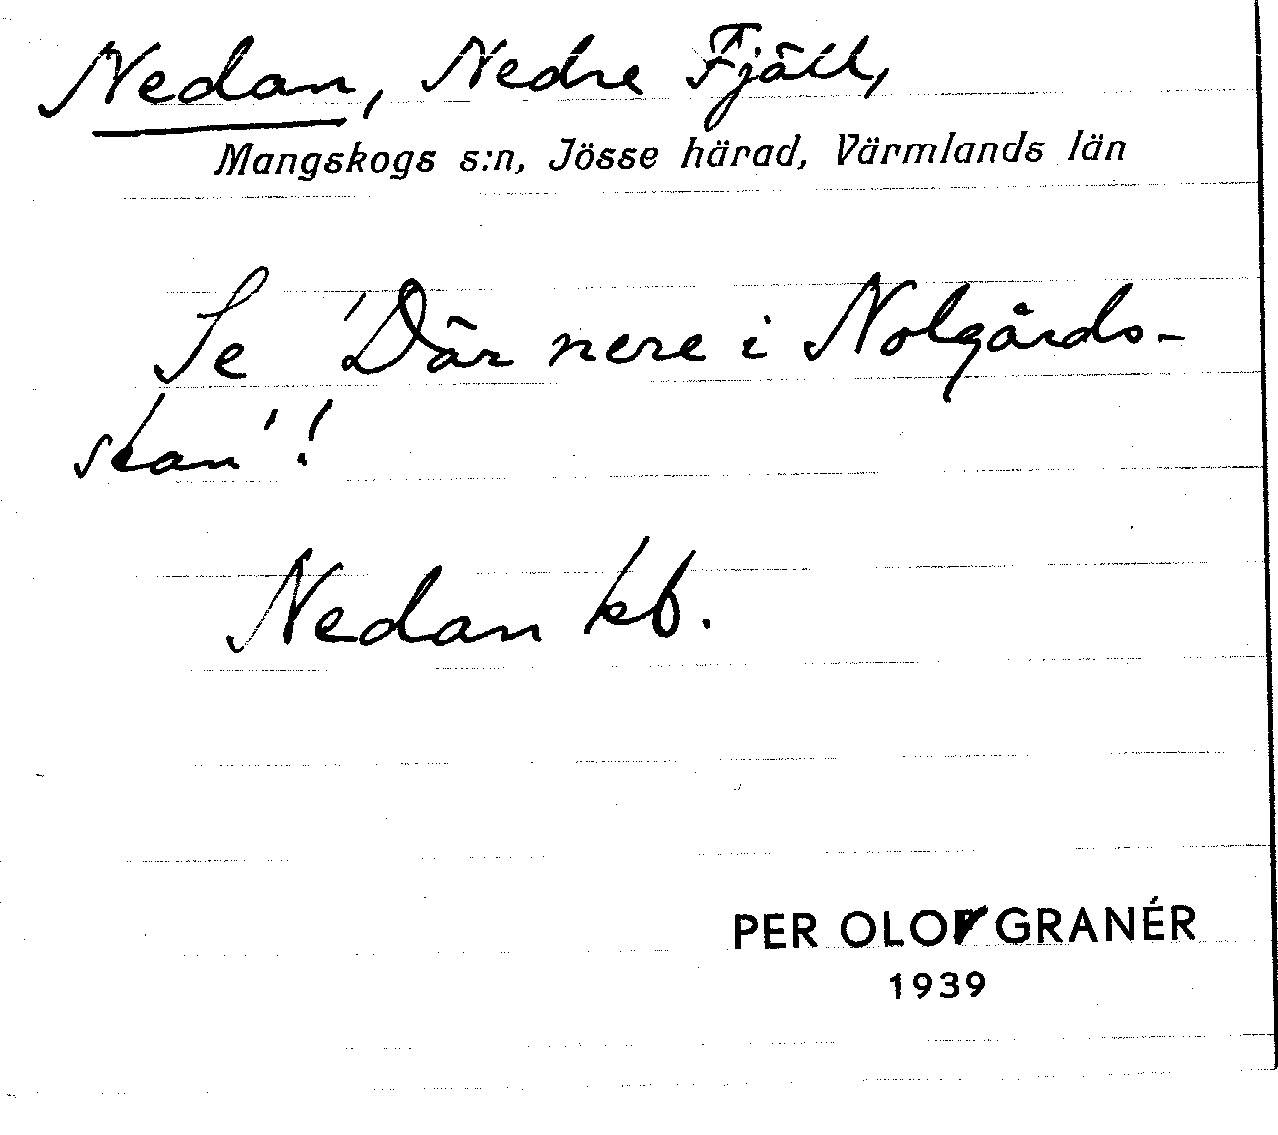 Nedan, Nedre Fjäll,
Mangskogs s:n, Jösse härad, Värmlands län
Se 'Där nere i Nolgårds-
stan'!
Nedan kb.
PER OLOF GRANÉR
1939